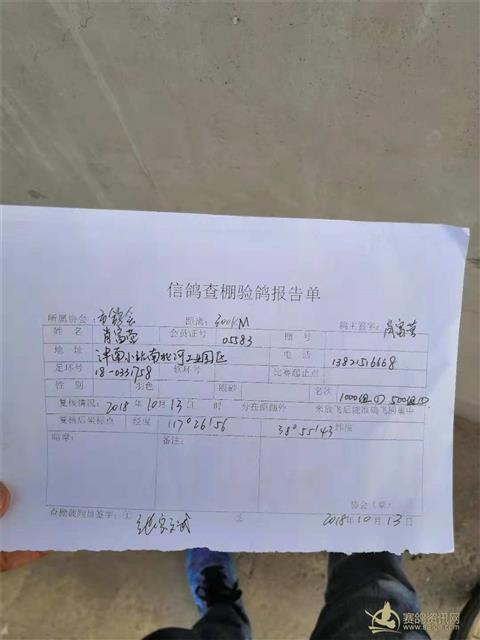 信鸽查棚验鸽报告单
所属协会：市鸽会 距离：300KM 鸽主签字：肖富营
姓名 肖富营 会员证号 05583 棚号
地址 津南小站南北河工业园区 电话 13821516668
足环号 18-0331758 软环号 比赛起止点
性别 羽色 眼砂 名次 1000组① 500组①
复核情况：2018年10月13日 时 分在距棚外 米放飞后能准确飞回巢中
复核后坐标点 经度 117°26156 38°55143 纬度
暗章： 备注：
协会（章）
查棚裁判员签字：① ② 2018年10月13日
赛鸽资讯网
www.saige.com